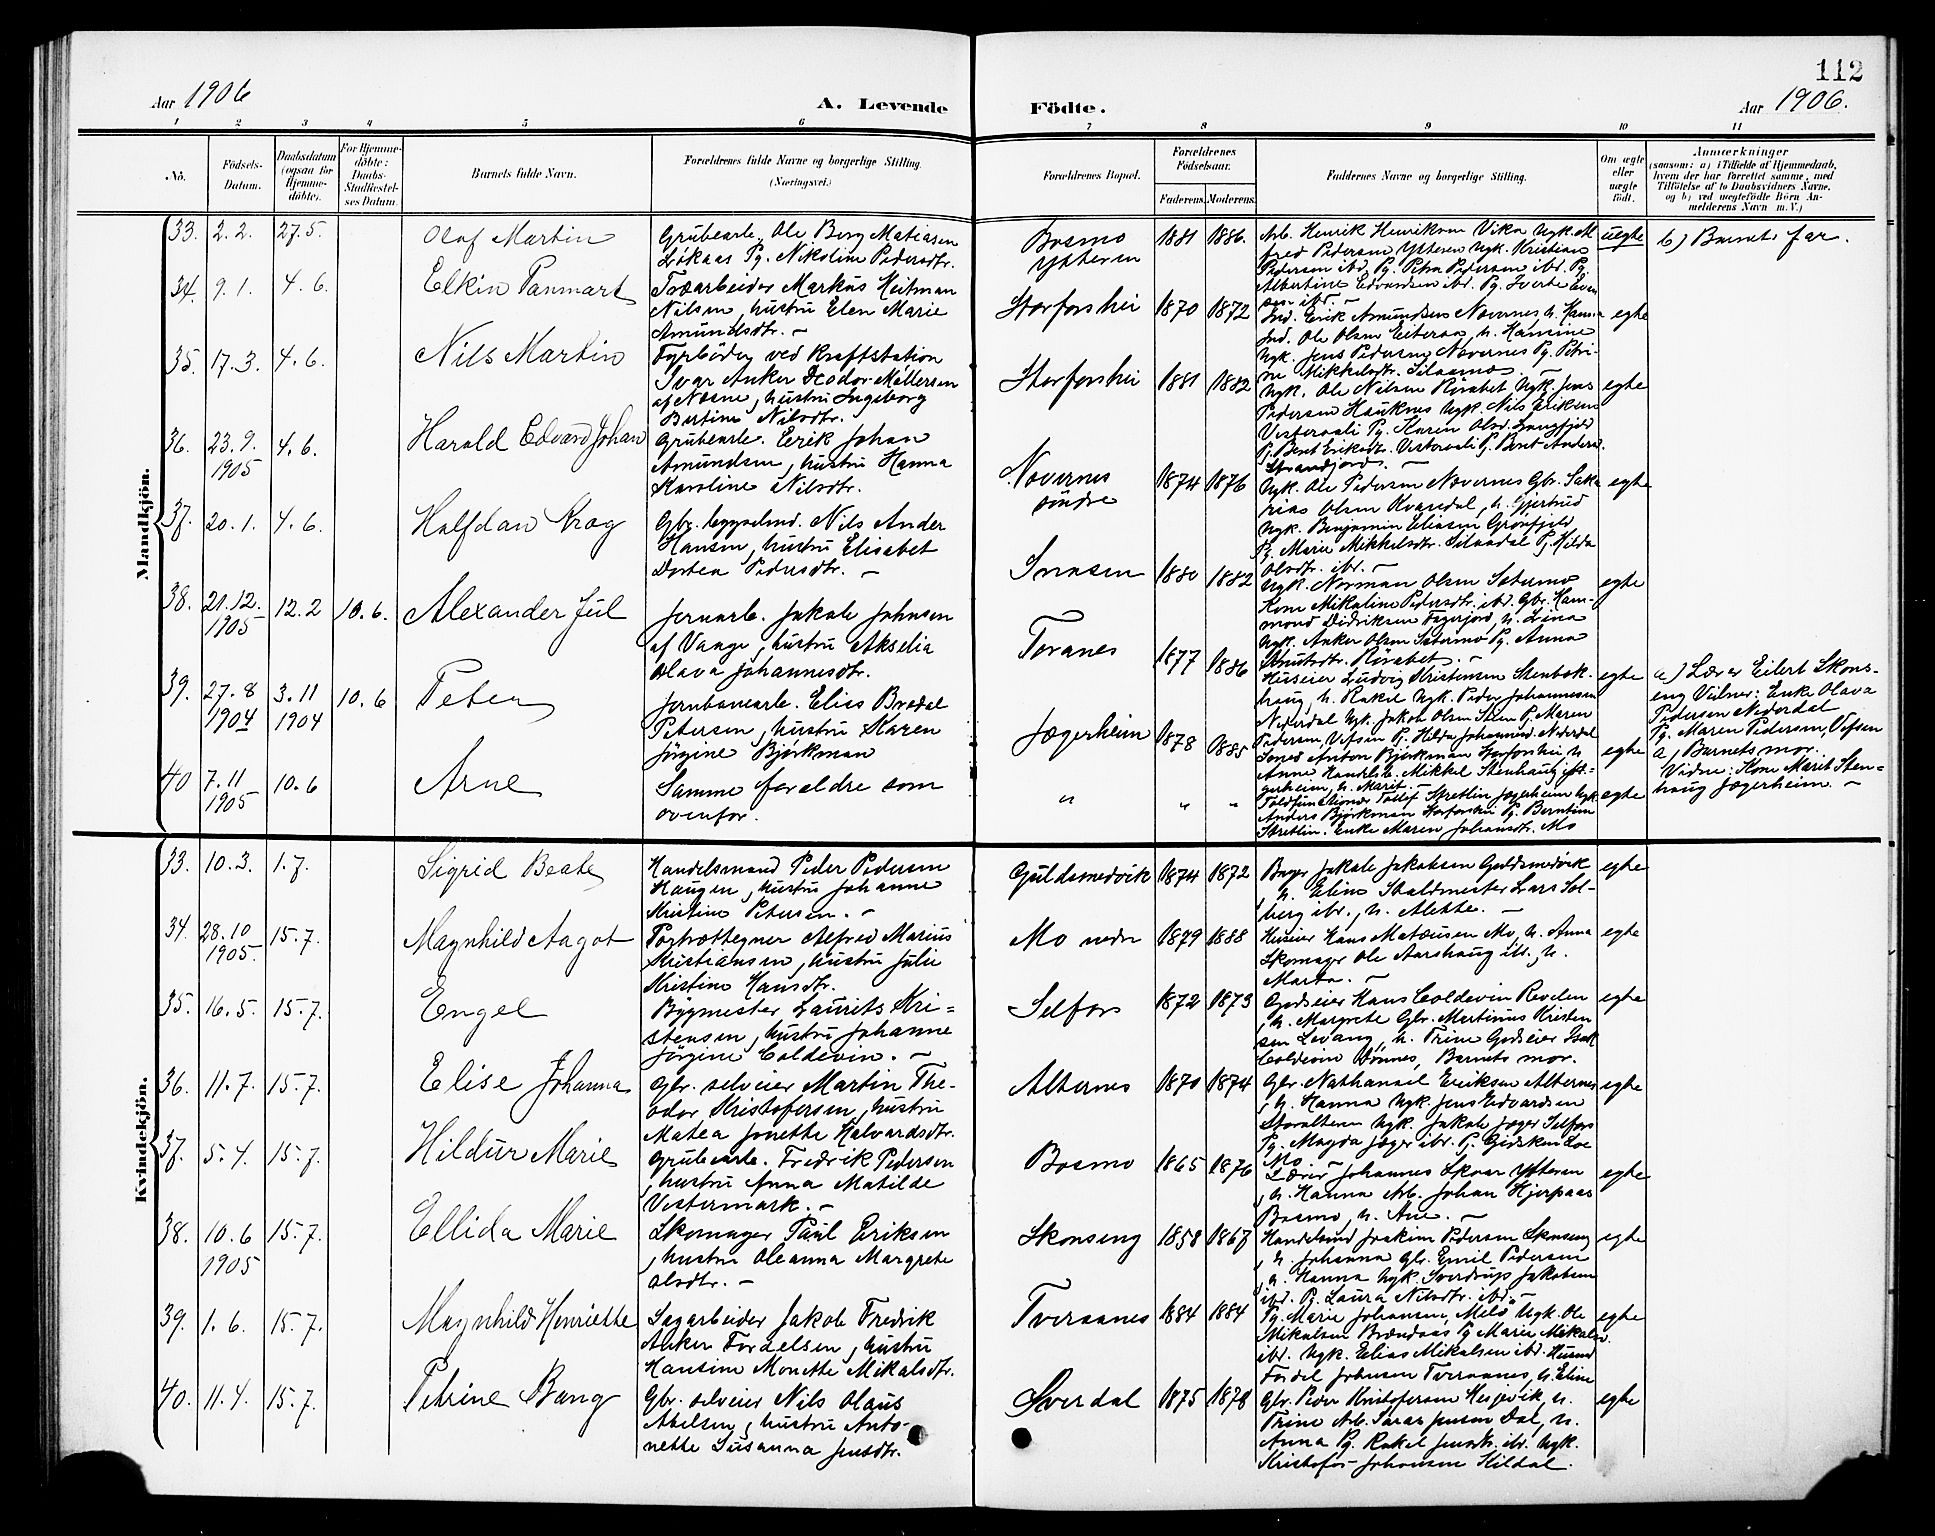 112
Aar 1906
A. Levende
Födte.
Aar 1906.
1 2 3 4 5 6 7 8 9 10 11
No.
Födsels-Datum.
Daabsdatum (ogsaa for Hjemmedöbte).
For Hjemmedöbte: Daabs-Stadfæstelses Datum.
Barnets fulde Navn.
Forældrenes fulde Navne og borgerlige Stilling.
(Næringsvei.)
Forældrenes Bopæl.
Forældrenes Födselsaar.
Faderens. Moderens.
Faddernes Navne og borgerlige Stilling.
Om ægte eller uægte födt.
Anmærkninger
(saasom: a) i Tilfælde af Hjemmedaab,
hvem der har forrettet samme, med
Tilföielse af to Daabsvidners Navne,
og b) ved uægtefödte Börn An-
melderens Navn m. V.)
Mandkjön.
33. 2.2. 27.5. Olaf Martin
Grubearb. Ole Berg Matiasen
Lökaas Pg. Nikoline Pedersdtr.
Bosmo
Ytteren
1881 1886.
Arb. Henrik Henrikson Vika Ugk. Al
fred Pedersen Ytteren Ugk. Kristian
Pedersen ibd. Pg. Petra Pedersen ibd. Pg.
Albertine Edvardsen ibd. Pg.
uegte
b) Barnets far.
34. 9.1. 4.6. Elkin Panmart
Træarbeider Markus Heitman
Nilsen, hustru Elen Marie
Amundsdtr. —
Storforshei
1870 1872
Ind. Erik Amundsen Nævernes h. Hanna
Ind. Ole Olsen Eiteraa h. Hansine
Ugk. Jens Pedersen Nævernes Pg. Petri-
ne Mikkelsdtr.
egte
35. 17.3. 4.6. Nils Martin
Fyrböder ved Kraftstation
Ivar Anker Deodor Möllersen
af Næsne, hustru Ingeborg
Bertine Nilsdtr.
Storforshei
1881 1882
Ugk. Ole Nilsen Rösabet Ugk. Jens
Pedersen Hauknes Ugk. Nils Eriksen
Vesteraali Pg. Karen Olsd. Langfjeld
Pg. Berit Eriksdtr. Vesteraali Pg. Berit Anders.
Strandjord. —
egte
36. 23.9. 1905 4.6. Harald Edvard Johan
Grubearb. Eerik Johan
Amundsen, hustru Hanna
Karoline Nilsdtr.
Nævernes
söndre
1874 1876
Ugk. Ole Pedersen Nævernes Gbr. Saka
rias Olsen Kvasedal, h. Gjertrud
Ugk. Benjamin Eliasen Grönfjeld
Pg. Marie Mikkelsdtr. Silaadal Pg. Hilda
Olsdtr. ibd. —
egte
37. 20.1. 4.6. Halfdan Krog
Gbr. bygselmd. Nils Ander
Hansen, hustru Elisabet
Dortea Pedersdtr. —
Snaasen
1880 1882
Ugk. Norman Olsen Sætermo
Kone Mikaline Pedersdtr. ibd. Gbr. Ham-
mond Didriksen Fagerjord, h. Lina
Ugk. Anker Olsen Sætermo Pg. Anna
Knutsdtr. Rösabet. —
egte
38. 21.12. 1905 12.2 10.6. Alexander Jül
Jernarb. Jakob Johnsen
af Vange, hustru Akselia
Olava Johannesdtr.
Toranes
1877 1886
Huseier Ludvig Kristensen Stenbak-
haug, h. Rakel Ugk. Peder Johannesen
Nederdal Ugk. Jakob Olsen Steen Pg. Maren
Pedersen, Vefsen Pg. Hilda Johannesd. Nederdal
egte
a) Lærer Eilert Skons-
eng Vidner: Enke Olava
Pedersen Nederdal
Pg. Maren Pedersen, Vefsen
39. 27.8 1904 3.11 1904 10.6 Peter
Jernbanearb. Elias Brædal
Petersen, hustru Karen
Jörgine Björkman
Jægerheim
1878 1885
Jonas Anton Björkman Storforshei h.
Anne Handelsb. Mikkel Stenhaug Jæ-
gerheim, h. Marit. —
egte
a) Barnets mor.
Vidne: Kone Marit Sten-
haug Jægerheim. —
40 7.11 1905 10.6 Arne
Samme forældre som
ovenfor.
" " "
Toldfunktionær Tollef Stretlin Jægerheim Ugk.
Anders Björkman Storforshei Pg. Berntine
Stretlin. Enke Maren Johansdtr. Mo
egte
Kvindekjön.
33. 10.3. 1.7. Sigrid Beate
Handelsmand Peder Pedersen
Haugen, hustru Johanne
Kristine Petersen. —
Guldsmedvik
1874 1872
Bager Jakob Jakobsen Guldsmedvik
, h. Eline Staldmester Lars Sol-
berg ibr., h. Alette. —
egte
34. 28.10 1905. 15.7. Magnhild Aagot
Portrættegner Alfred Marius
Kristiansen, hustru Julie
Kristine Hansdtr.
Mo nedre
1879 1888
Huseier Hans Mateusen Mo, h. Anna
Skomager Ole Aarshaug ib., h.
Marta. —
egte
35. 16.5. 15.7. Engel
Bygmester Laurits Kri-
stensen, hustru Johanne
Jörgine Coldevin. —
Selfors
1872 1873
Godseier Hans Coldevin Revelen
, h. Margrete Gbr. Martinus Kristen
sen Levang, h. Trine Godseier Isak
Coldevin Dönnes, Barnets mor.
egte
36. 11.7. 15.7. Elise Johanna
Gbr. selveier Martin The-
odor Kristofersen, hustru
Matea Jonette Halvardsdtr.
Alternes
1870 1874
Gbr. Nathanael Eriksen Alternes
, h. Hanna Ugk. Jens Edvardsen
Storalteren Ugk. Jakob Jæger Selfors
Pg. Magda Jæger ibr. Pg. Gidsken Loe
Mo —
egte
37. 5.4. 15.7. Hildur Marie
Grubearb. Fredrik Pedersen
, hustru Anna Matilde
Vestermark. —
Bosmo
1865 1876
Lærer Johannes Skaar Ytteren
, h. Hanna Arb. Johan Hjerpaas
Bosmo, h. Ane. —
egte
38. 10.6 1905 15.7. Ellida Marie
Skomager Paul Eriksen
, hustru Oleanna Margrete
Olsdtr. —
Skonseng
1858 1867
Handelsmd Joakim Pedersen Skonseng
, h. Johanna Gbr. Emil Pedersen
, h. Hanna Ugk. Sverdrup Jakobsen
ibd. Pg. Laura Nilsdtr. ibd. —
egte
39. 1.6. 15.7. Magnhild Henriette
Sagarbeider Jakob Fredrik
Anker Fordelsen, hustru
Hansine Monette Mikalsdtr.
Tveraanes
1884 1884
Pg. Marie Johansen, Melö Ugk. Ole
Mikalsen Brændaas Pg. Marie Mikalsd.
ibd. Ugk. Elias Mikalsen ibd. Husmd
Fordel Johnsen Tveraanes, h. Eline
egte
40. 11.4. 15.7. Petrine Bang
Gbr. selveier Nils Olaus
Abelsen, hustru Anto-
nette Susanna Jensdtr.
Sverdal
1875 1878
Gbr. Peder Kristofersen Hesjevik, h.
Trine Arb. Saras Jensen Dal, h.
Anna Pg. Rakel Jensdtr. ibr. Ugk.
Kristofer Johansen Kildal.
egte